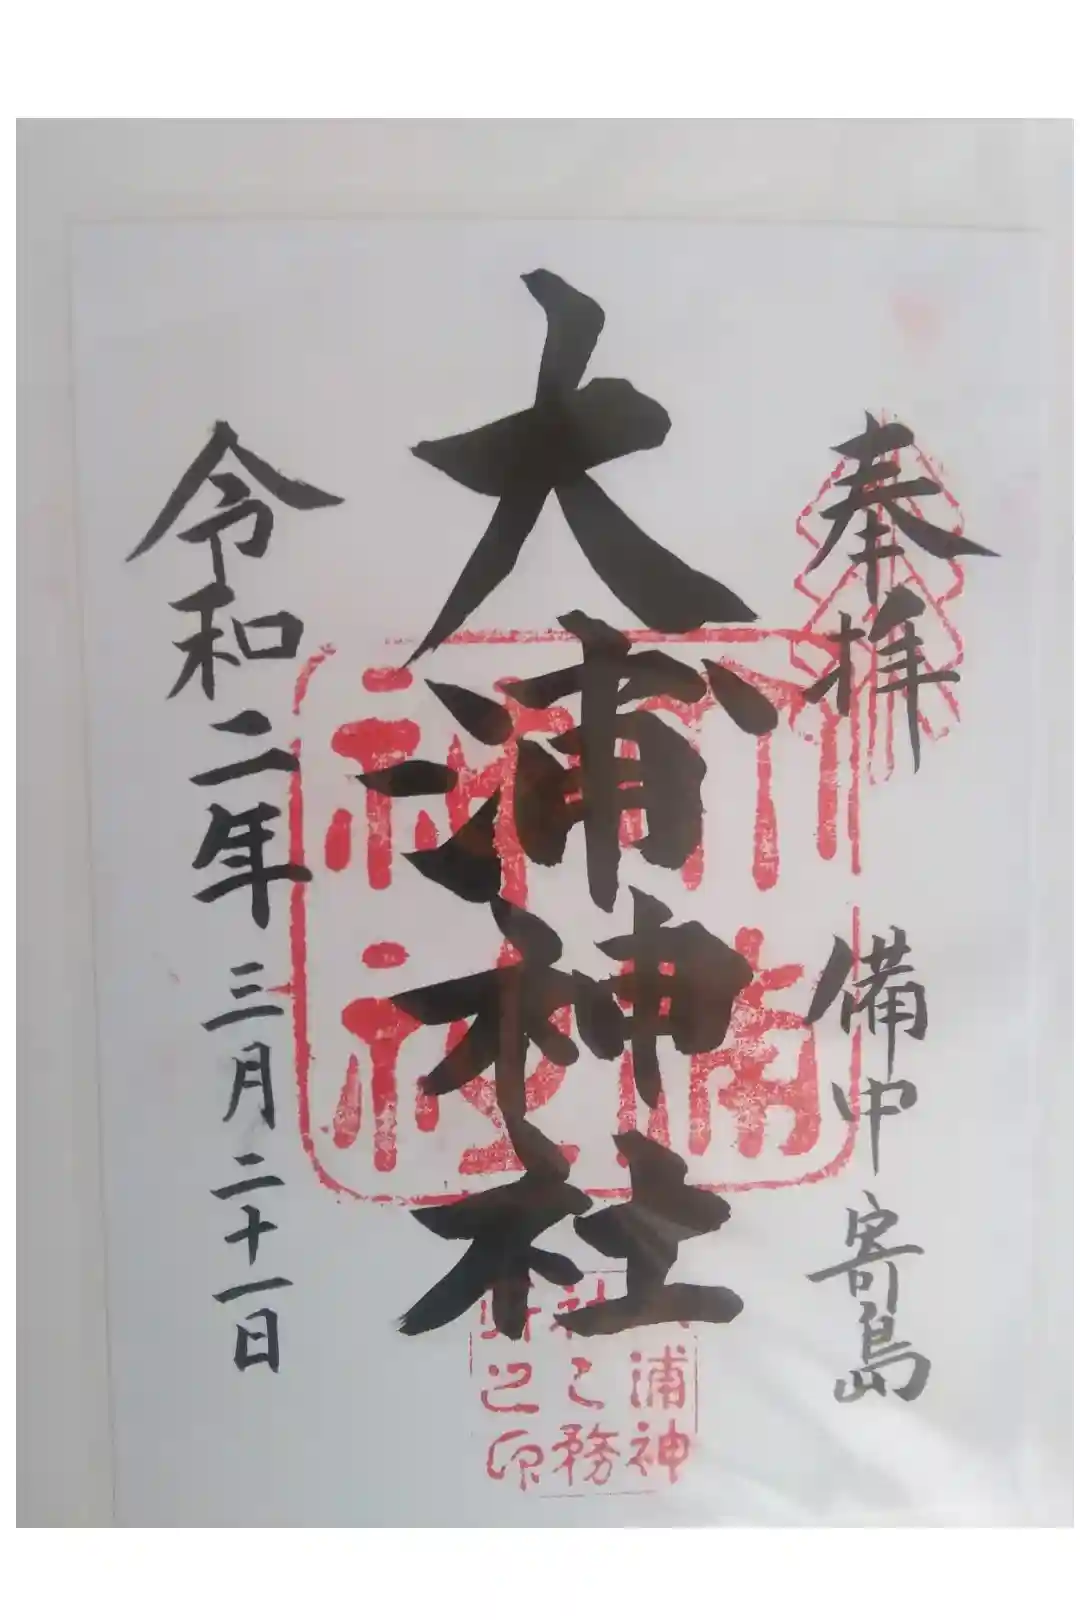 奉拝
備中 寄島
大浦神社
大浦神社
令和二年三月二十一日
浦神
社之務
所之印